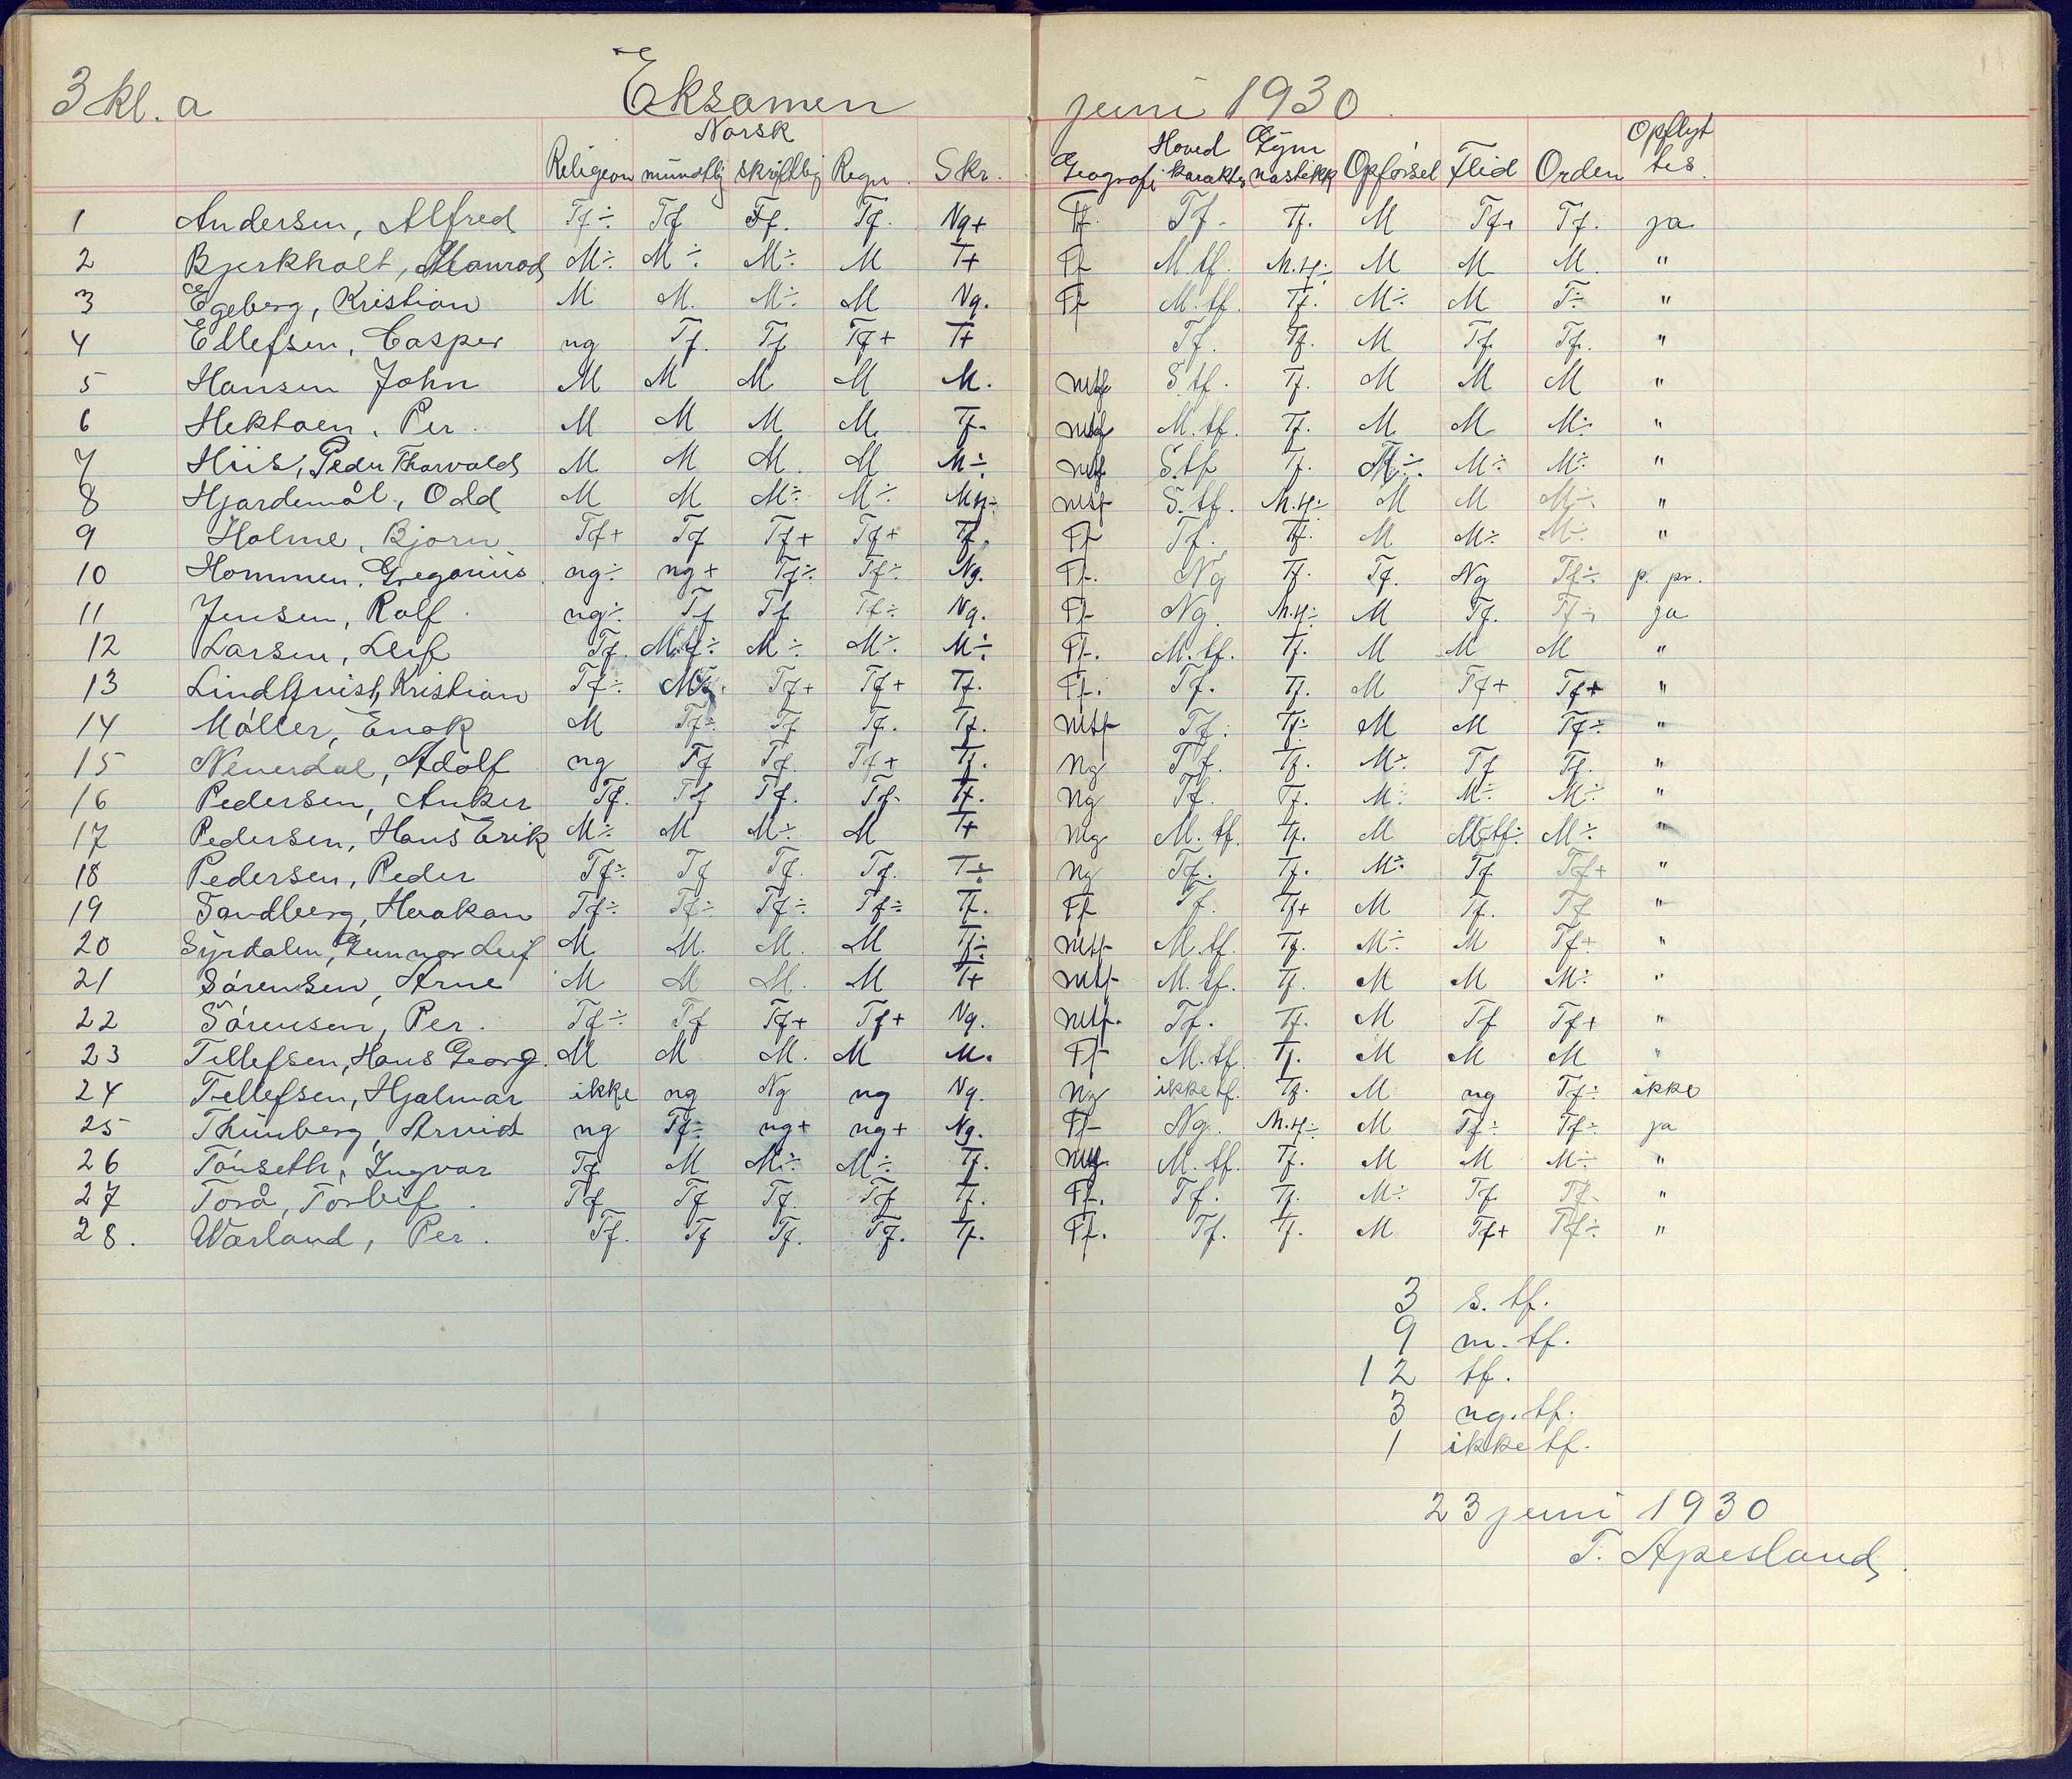 3 kl. a Eksamen juni 1930
Norsk Hoved Gym Opflyt
Religion mundtlig skriftlig Regn. Skr. Geografi karakter nastikk Opförsel Flid Orden tes.
1 Andersen, Alfred Tf÷ Tf Tf. Tf. Ng+ Tf. Tf- Tf. M Tf+ Tf. ja
2 Bjerkholt, M÷ M÷ M÷ M T+ Tf M.tf. M.tf÷ M M M. "
3 Egeberg, Kristian M M. M÷ M Ng. Tf M.tf. Tf. M÷ M T÷ "
4 Ellefsen, Casper ng Tf. Tf Tf+ T+ Tf. Tf. M Tf Tf. "
5 Hansen John M M M M M. mtf S.tf. Tf. M M M "
6 Hektoen, Per. M M M M. Tf. mtf M.tf. Tf. M M M÷ "
7 Hiis, Peder Thorvald M M M. M M÷ mtf S.tf Tf. M÷. M÷ M÷ "
8 Hjardemål, Odd M M M÷ M÷ Mtf÷ mtf S.tf. M.tf÷ M M M÷ "
9 Holme, Bjorn Tf+ Tf Tf+ Tf+ Tf. Tf Tf. Tf. M M÷ M÷ "
10 Hommen, Gregorius ng÷ ng+ Tf÷ Tf÷ Ng. Tf. Ng Tf. Tf. Ng Tf÷ p. pr.
11 Jensen, Rolf. ng÷ Tf Tf Tf÷ Ng. Tf Ng. M.tf÷ M Tf. Tf÷ ja
12 Larsen, Leif Tf. M.tf÷ M÷ M÷ M÷ Tf. M.tf. Tf. M M M "
13 Lindquist, Kristian Tf÷ Tf+ Tf+ Tf. Tf. Tf. Tf. M Tf+ Tf+ "
14 Möller, Enok M Tf÷ Tf Tf. Tf. mtf Tf. Tf÷ M M Tf÷ "
15 Neuerdal, Adolf ng Tf Tf. Tf+ Tf. Ng Tf. Tf. M÷ Tf Tf. "
16 Pedersen, Anker Tf. Tf Tf. Tf. Tf. Ng Tf. Tf. M÷ M÷ M÷ "
17 Pedersen, Hans Erik M÷ M M÷ M T+ Mg M.tf. Tf. M M.tf÷ M÷ "
18 Pedersen, Peder Tf÷ Tf Tf. Tf. T÷ Ng Tf. Tf. M÷ Tf Tf+ "
19 Sandberg, Haakan Tf÷ Tf÷ Tf÷ Tf÷ Tf. Tf Tf. Tf+ M Tf. Tf "
20 Syrdalen, Gunnar Leif M. M. M. M Tf÷ mtf M.tf. Tf. M÷ M Tf+ "
21 Sörensen, Arne M M M. M T+ mtf M.tf. Tf. M M M÷ "
22 Sörensen, Per. Tf÷ Tf Tf+ Tf+ Ng. mtf. Tf. Tf. M Tf Tf+ "
23 Tellefsen, Hans Georg. M M M. M M. Tf M.tf. Tf. M M M "
24 Tellefsen, Hjalmar ikke ng Ng ng Ng. Ng ikke tf. Tf. M ng Tf÷ ikke
25 Thunberg, Arvid ng Tf÷ ng+ ng+ Ng. Tf Ng. M.tf÷ M Tf÷ Tf÷ ja
26 Tönseth, Ingvar Tf. M M÷ M÷ Tf. M.tf. Tf. M M M÷ "
27 Torå, Torleif. Tf Tf Tf. Tf Tf. Tf. Tf. Tf. M÷ Tf Tf "
28. Wærland, Per. Tf. Tf Tf. Tf. Tf. Tf. Tf. Tf. M Tf+ Tf÷ "
3 s. tf.
9 m. tf.
12 tf.
3 ng. tf.
1 ikke tf.
23 juni 1930
T. Apesland.